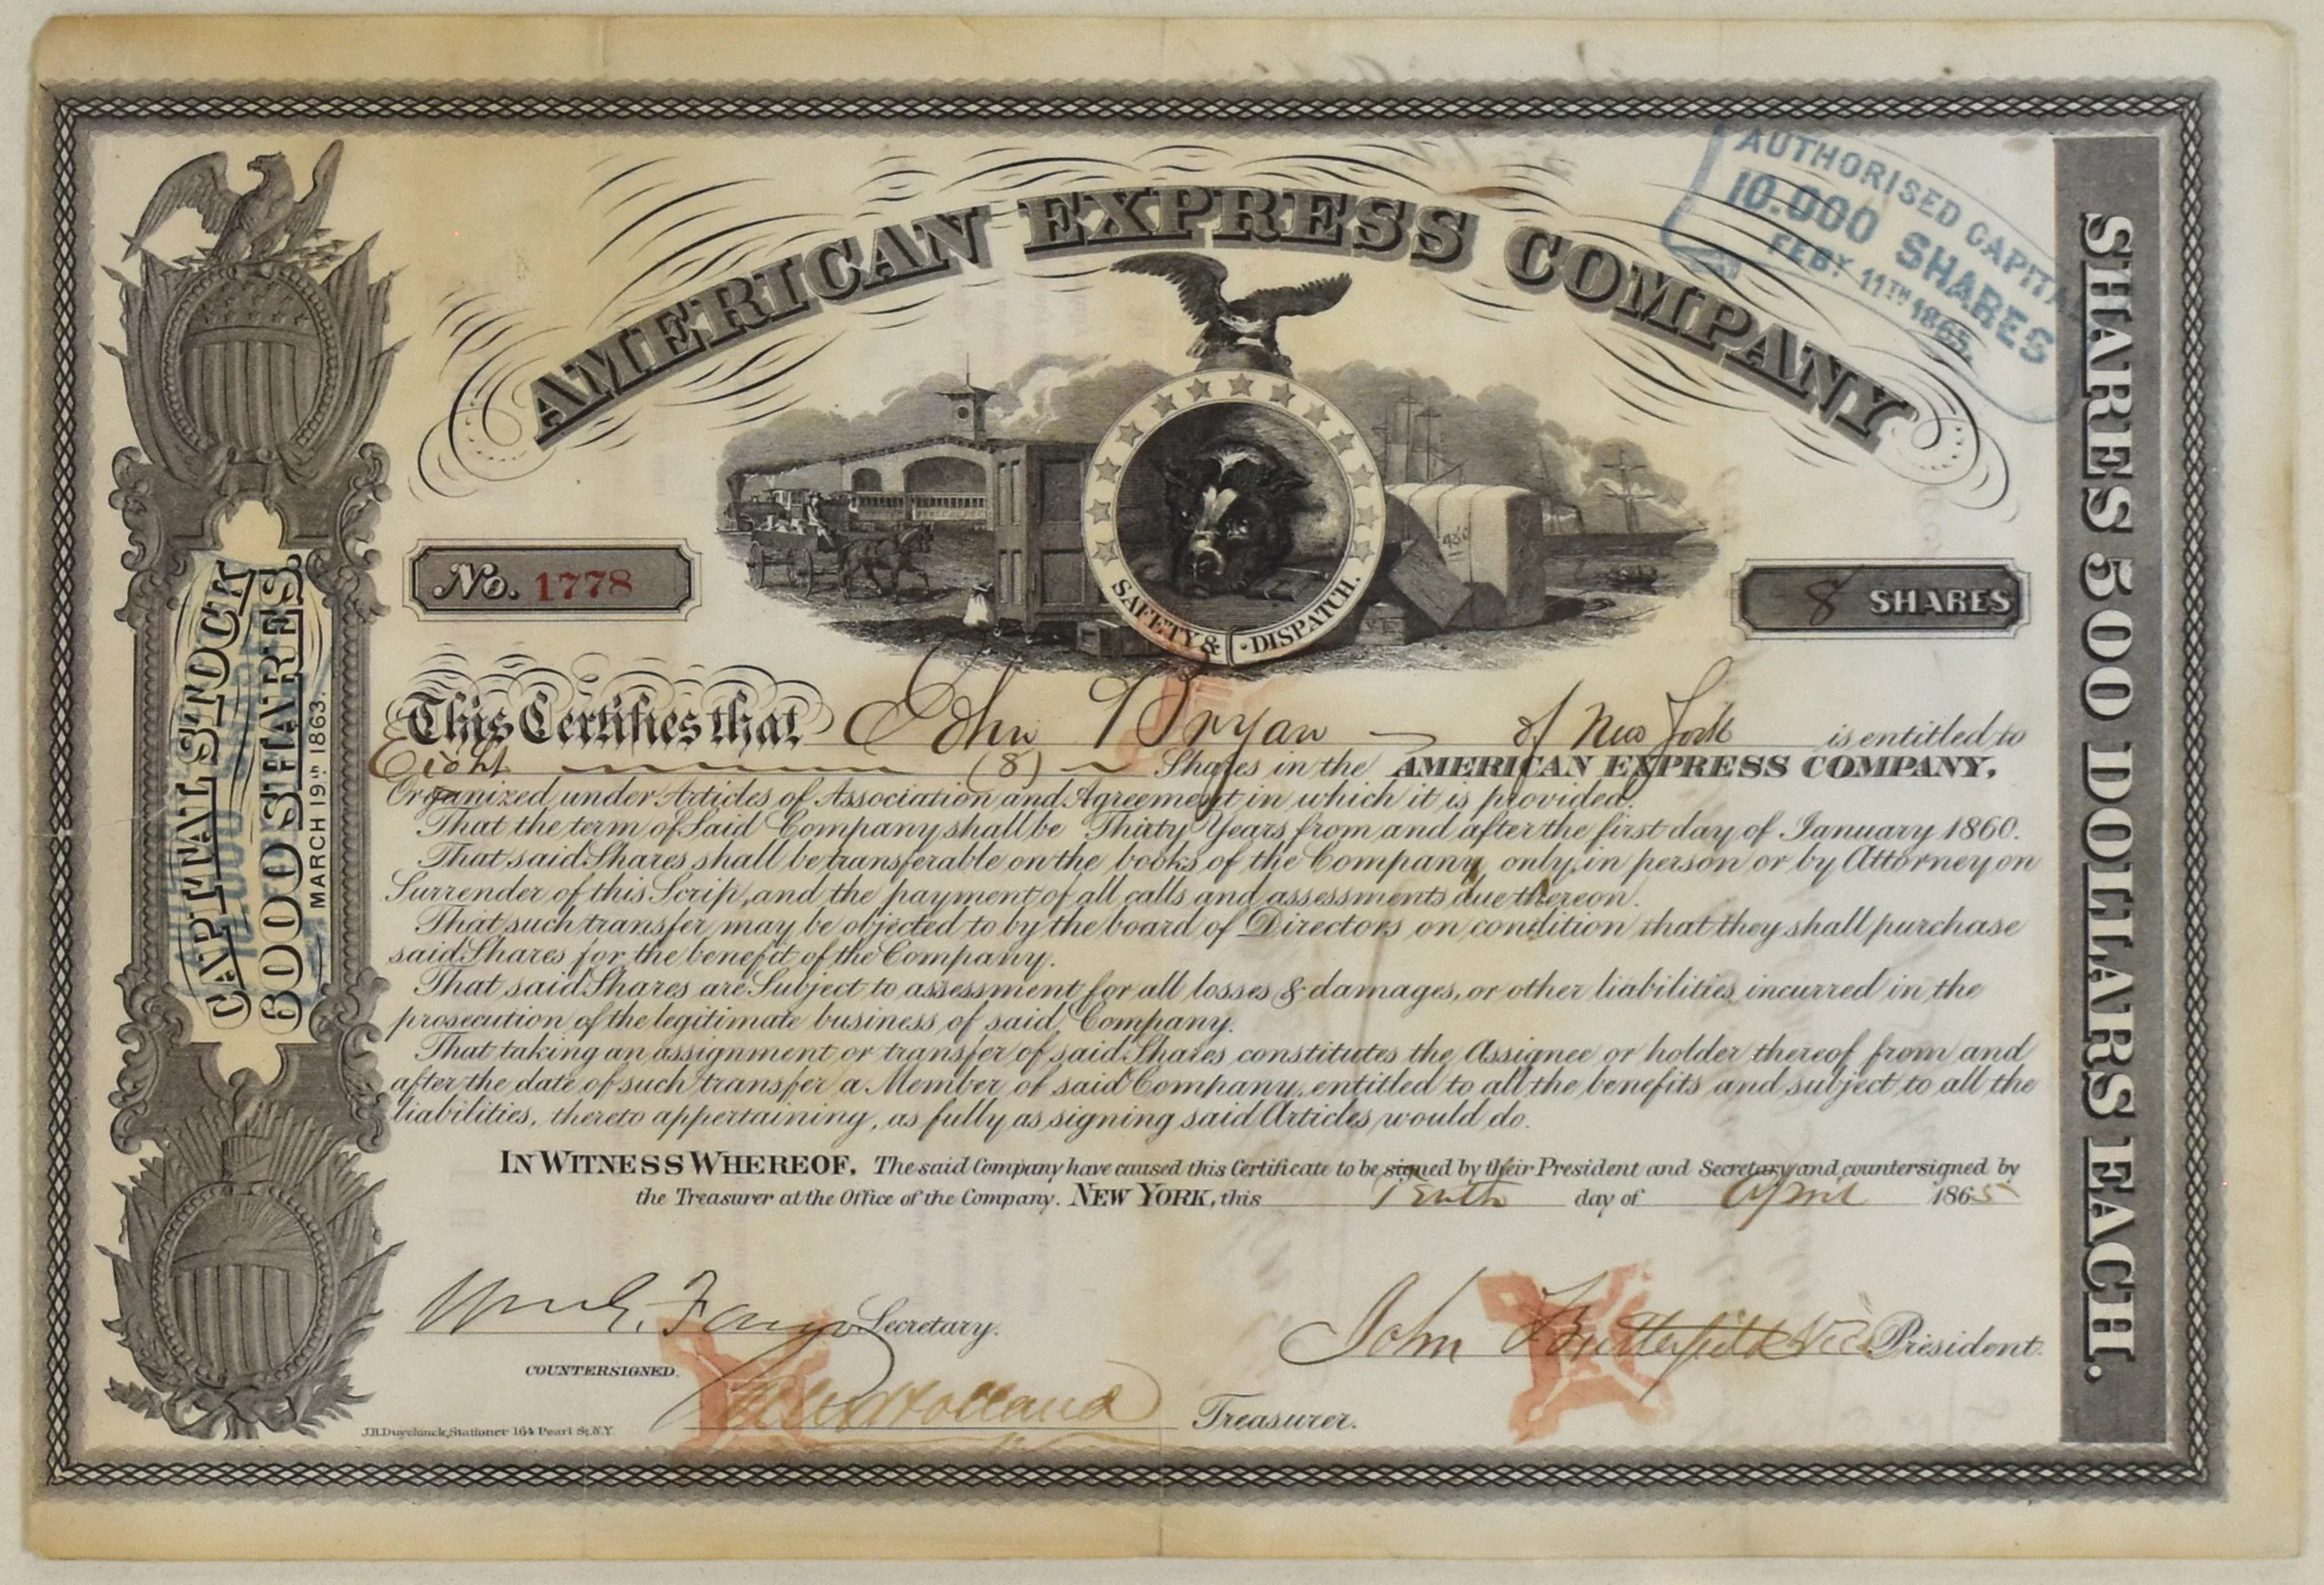 AMERICAN EXPRESS COMPANY
AUTHORISED CAPITAL
10.000 SHARES
FEBY 11TH 1865.
SAFETY & DISPATCH.
No. 1778
8 SHARES
CAPITAL STOCK
6000 SHARES.
MARCH 19TH 1863.
SHARES 500 DOLLARS EACH.
This Certifies that John Bryan of New York is entitled to
Eight (8) Shares in the AMERICAN EXPRESS COMPANY,
Organized under Articles of Association and Agreement in which it is provided.
That the term of Said Company shall be Thirty Years from and after the first day of January 1860.
That said Shares shall be transferable on the books of the Company, only, in person or by Attorney on
Surrender of this Scrip, and the payment of all calls and assessments due thereon.
That such transfer may be objected to by the board of Directors on condition that they shall purchase
said Shares for the benefit of the Company.
That said Shares are Subject to assessment for all losses & damages, or other liabilities incurred in the
prosecution of the legitimate business of said Company.
That taking an assignment or transfer of said Shares constitutes the Assignee or holder thereof from and
after the date of such transfer a Member of said Company, entitled to all the benefits and subject to all the
liabilities, thereto appertaining, as fully as signing said Articles would do.
IN WITNESS WHEREOF, The said Company have caused this Certificate to be signed by their President and Secretary and countersigned by
the Treasurer at the Office of the Company. NEW YORK, this Tenth day of April 1865
Wm G. Fargo Secretary.
John Butterfield Vice President.
COUNTERSIGNED.
Holland Treasurer.
J.H. Duyckinck, Stationer 164 Pearl St. N.Y.